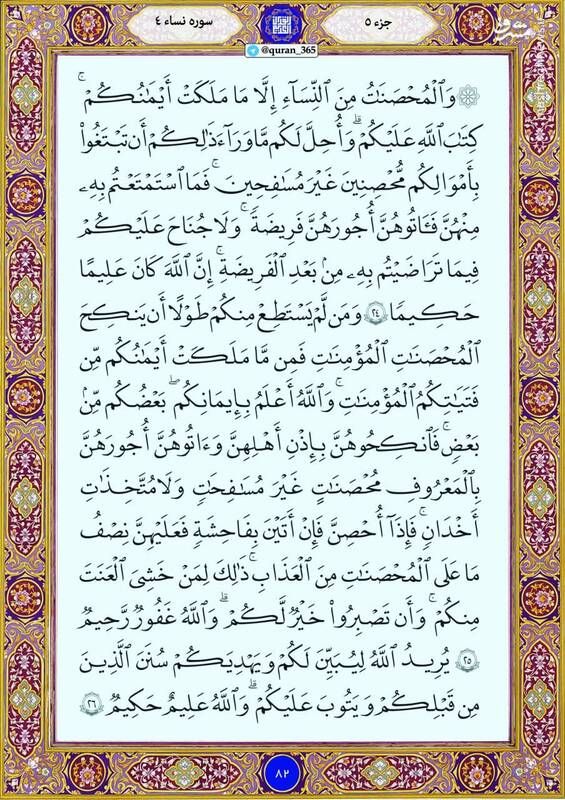 جزء ٥
سوره نساء ٤
مشرق
@quran_365
۞ وَٱلْمُحْصَنَٰتُ مِنَ ٱلنِّسَآءِ إِلَّا مَا مَلَكَتْ أَيْمَٰنُكُمْ ۖ
كِتَٰبَ ٱللَّهِ عَلَيْكُمْ ۗ وَأُحِلَّ لَكُم مَّا وَرَآءَ ذَٰلِكُمْ أَن تَبْتَغُوا۟
بِأَمْوَٰلِكُم مُّحْصِنِينَ غَيْرَ مُسَٰفِحِينَ ۚ فَمَا ٱسْتَمْتَعْتُم بِهِۦ
مِنْهُنَّ فَـَٔاتُوهُنَّ أُجُورَهُنَّ فَرِيضَةً ۚ وَلَا جُنَاحَ عَلَيْكُمْ
فِيمَا تَرَٰضَيْتُم بِهِۦ مِنۢ بَعْدِ ٱلْفَرِيضَةِ ۚ إِنَّ ٱللَّهَ كَانَ عَلِيمًا
حَكِيمًا ٢٤ وَمَن لَّمْ يَسْتَطِعْ مِنكُمْ طَوْلًا أَن يَنكِحَ
ٱلْمُحْصَنَٰتِ ٱلْمُؤْمِنَٰتِ فَمِن مَّا مَلَكَتْ أَيْمَٰنُكُم مِّن
فَتَيَٰتِكُمُ ٱلْمُؤْمِنَٰتِ ۚ وَٱللَّهُ أَعْلَمُ بِإِيمَٰنِكُم ۚ بَعْضُكُم مِّنۢ
بَعْضٍ ۚ فَٱنكِحُوهُنَّ بِإِذْنِ أَهْلِهِنَّ وَءَاتُوهُنَّ أُجُورَهُنَّ
بِٱلْمَعْرُوفِ مُحْصَنَٰتٍ غَيْرَ مُسَٰفِحَٰتٍ وَلَا مُتَّخِذَٰتِ
أَخْدَانٍ ۚ فَإِذَآ أُحْصِنَّ فَإِنْ أَتَيْنَ بِفَٰحِشَةٍ فَعَلَيْهِنَّ نِصْفُ
مَا عَلَى ٱلْمُحْصَنَٰتِ مِنَ ٱلْعَذَابِ ۚ ذَٰلِكَ لِمَنْ خَشِىَ ٱلْعَنَتَ
مِنكُمْ ۚ وَأَن تَصْبِرُوا۟ خَيْرٌ لَّكُمْ ۗ وَٱللَّهُ غَفُورٌ رَّحِيمٌ
٢٥ يُرِيدُ ٱللَّهُ لِيُبَيِّنَ لَكُمْ وَيَهْدِيَكُمْ سُنَنَ ٱلَّذِينَ
مِن قَبْلِكُمْ وَيَتُوبَ عَلَيْكُمْ ۗ وَٱللَّهُ عَلِيمٌ حَكِيمٌ ٢٦
٨٢